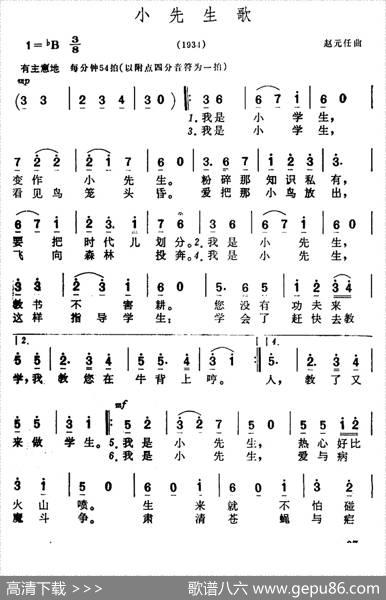 小先生歌
1=♭B 3/8 (1934) 赵元任曲
有主意地 每分钟54拍(以附点四分音符为一拍)
mp
(3 3 2 3 4 2 3 4 0 3 0) 3 6 6 7 1 6 0
1.我是 小学生,
3.我是 小学生,
7 2 2 1 2 1 6 0 3. 6 7 1 2 3 3.
变作 小先生。 粉碎那知识私有,
看见鸟 笼头昏。 爱把那小鸟放出,
6 7 1 2 2 3. 1 7 6 3 6 6 7 1 6 0
要把时代儿划分。2.我是 小先生,
飞向森林 投奔。4.我是 小先生,
3 2 1 2 3 6 0 5. 6 5 1 2 3 4
教书不害耕。 您没有功夫来
这样指导学生; 学会了赶快去教
1. 2. 3. 4.
5 5 5 5 4 5 2 3 1 5 2. 3 4
学,我教您在牛背上哼。 人,教了又
mf
5 5 3 1 5 2 3 2 1 6 0 5 5 1 2
来做学生。5.我是 小先生, 热心好比
6.我是 小先生, 爱与病
火山喷。 生来就不怕碰
魔斗争。 肃清苍蝇与疟
高清下载 >>>> 歌谱八六 www.gepu86.com